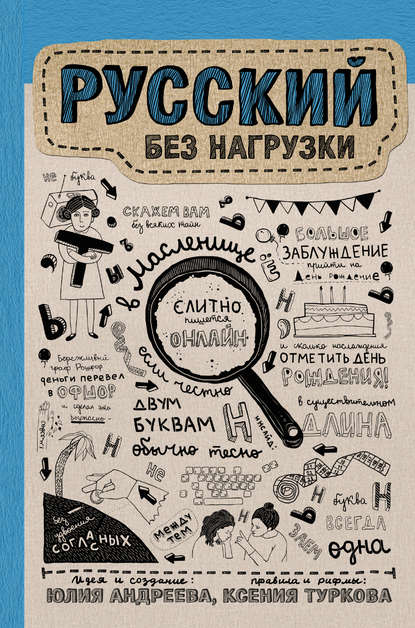 РУССКИЙ
БЕЗ НАГРУЗКИ
не буква
Т
СКАЖЕМ ВАМ
без всяких тайн
в масленице
СЛИТНО
пишется
ОНЛАЙН
БОЛЬШОЕ
ЗАБЛУЖДЕНИЕ
прийти на
День рождение
и сколько наслаждения
ОТМЕТИТЬ ДЕНЬ
РОЖДЕНИЯ!
Бережливый
граф Рошфор
деньги перевел
в ОФШОР
и сделал это
если честно
ДВУМ
БУКВАМ
Н
обычно тесно
инсайд:
в существительном
ДЛИНА
буква Н
ВСЕГДА
одна
не
без удвоения
СОГЛАСНЫХ
МЕЖДУ
ТЕМ
Идея и создание:
правила и рифмы:
ЮЛИЯ АНДРЕЕВА, КСЕНИЯ ТУРКОВА